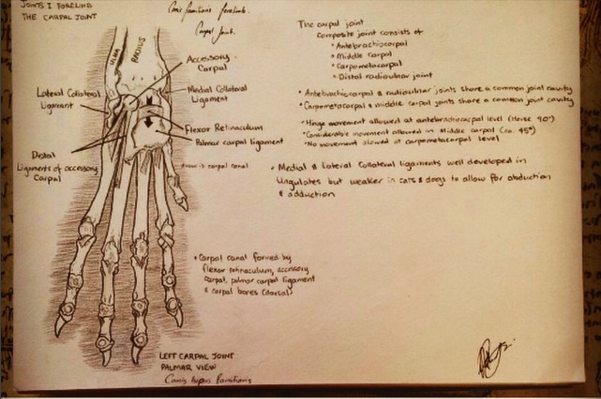 JOINTS 1 FORELIMB
THE CARPAL JOINT
Canis familiaris forelimb.
Carpal Joint.
ULNA
RADIUS
Accessory
Carpal
Lateral Collateral
Ligament
Medial Collateral
Ligament
Flexor Retinaculum
Palmar carpal ligament
Distal
Ligaments of accessory
Carpal
Arrow is carpal canal
• Carpal canal formed by
flexor retinaculum, accessory
carpal, palmar carpal ligament
& carpal bones (dorsal)
LEFT CARPAL JOINT
PALMAR VIEW
Canis lupus familiaris
The carpal joint
Composite joint consists of
• Antebrachiocarpal
• Middle carpal
• Carpometacarpal
• Distal radioulnar joint
• Antebrachiocarpal & radioulnar joints share a common joint cavity
• Carpometacarpal & middle carpal joints share a common joint cavity
• Hinge movement allowed at antebrachiocarpal level (Horse 90°)
• Considerable movement allowed in Middle carpal (ca. 45°)
• No movement allowed at carpometacarpal level
• Medial & Lateral Collateral ligaments well developed in
Ungulates but weaker in cats & dogs to allow for abduction
& adduction